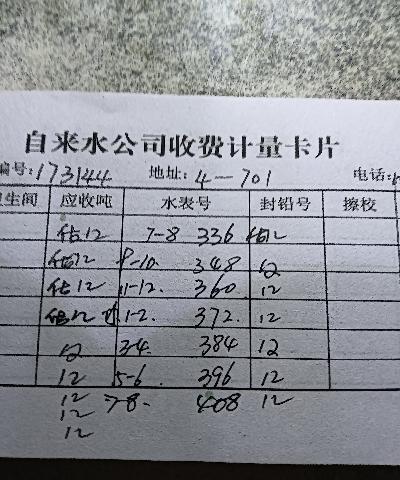 自来水公司收费计量卡片
编号:173144 地址:4-701 电话:
卫生间 应收吨 水表号 封铅号 擦校
估12 7-8 336 估12
估12 9-10 348 12
估12 11-12 360 12
估12 1-2. 372. 12
12 3-4. 384 12
12 5-6. 396 12
12 7-8. 408 12
12
12